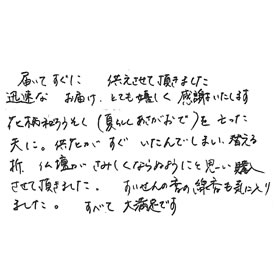 届いてすぐに 供えさせて頂きました
迅速な お届け、とても嬉しく 感謝いたします
花柄ろうそく(夏らしくあさがおで)を 七った
天に。供花が すぐ いたんでしまい、替える
折、仏壇が さみしくならぬようにと 思い 購入
させて頂きました。 すいせんの香の線香も気に入り
ました。 すべて 大満足です